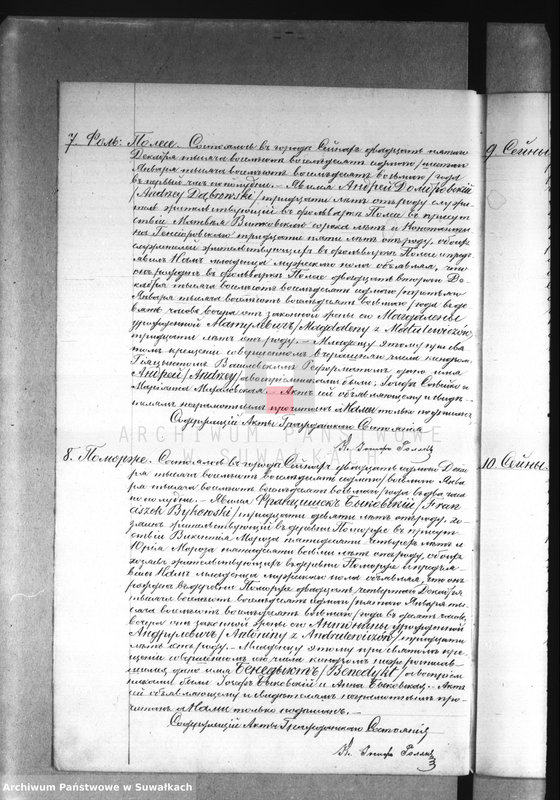 7. Фоль: Полесе. Состоялось въ городѣ Сейнахъ двадцать пятаго
Декабря тысяча восемьсотъ восемьдесятъ седьмого /шестаго
Января тысяча восемьсотъ восемьдесятъ восьмого/ года
въ первый часъ пополудни. – Явился Андрей Домбровскій
/Andrzej Dąbrowski/ тридцати лѣтъ отъ роду слу
жительствующій въ фольваркѣ Полесе въ присут
ствіи Витковскаго сорока лѣтъ и Константи
на тридцати пяти лѣтъ отъ роду, обоихъ
жительствующихъ въ фольваркѣ Полесе и предъ
явилъ Намъ младенца мужескаго пола объявляя, что
онъ родился въ фольваркѣ Полесе двадцать втораго Де
кабря тысяча восемьсотъ восемьдесятъ седьмого /третьяго
Января тысяча восемьсотъ восемьдесятъ восьмого/ года въ де
вять часовъ вечера отъ законной жены его Магдалены
урожденной Матулевичъ /Magdaleny z Matulewiczów/
тридцати лѣтъ отъ роду. – Младенцу этому при свя
томъ крещеніи совершенномъ
дано имя
Андрей /Andrzej/ а воспріемниками были Іосифъ и
Марьянна – Актъ сей объявляющему и свидѣ
телямъ неграмотнымъ прочитанъ Нами только подписанъ.
Содержащій Акты Гражданскаго Состоянія
Кс. Іосифъ
8. Поморже. Состоялось въ городѣ Сейнахъ двадцать седьмого Дека
бря тысяча восемьсотъ восемьдесятъ седьмого /восьмого Янва
ря тысяча восемьсотъ восемьдесятъ восьмого/ года въ два часа
по полудни. – Явился Францишекъ Быковскій /Fran
ciszek Bykowski/ тридцати девяти лѣтъ отъ роду, хо
зяинъ жительствующій въ деревнѣ Поморже въ присут
ствіи Викентія Мороза пятидесяти четырехъ лѣтъ и
Юрія Мороза пятидесяти восьми лѣтъ отъ роду, обоихъ
хозяевъ жительствующихъ въ деревнѣ Поморже и предъя
вилъ Намъ младенца мужескаго пола объявляя, что онъ
родился въ деревнѣ Поморже двадцать четвертаго Декабря
тысяча восемьсотъ восемьдесятъ седьмого /пятаго Января ты
сяча восемьсотъ восемьдесятъ восьмого/ года въ десять часовъ
вечера отъ законной жены его Антонины урожденной
Андрулевичъ /Antoniny z Andrulewiczów/ тридцати
лѣтъ отъ роду. – Младенцу этому при святомъ кре
щеніи совершенномъ сего числа
дано имя Бенедыктъ /Benedykt/ а воспріем
никами были Іосифъ Быковскій и Анна Быковская. – Актъ
сей объявляющему и свидѣтелямъ неграмотнымъ про
читанъ Нами только подписанъ. –
Содержащій Акты Гражданскаго Состоянія
Кс. Іосифъ
9 Сейны
10. Сейны
ARCHIWUM PAŃSTWOWE
W SUWAŁKACH
Archiwum Państwowe w Suwałkach